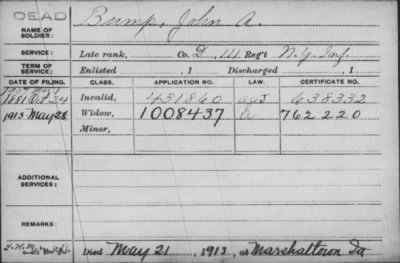 DEAD
NAME OF SOLDIER: Bump, John A.
SERVICE: Late rank, Co. D, 44 Reg't N.Y. Inf.
TERM OF SERVICE: Enlisted , 1 Discharged , 1
DATE OF FILING. CLASS. APPLICATION NO. LAW. CERTIFICATE NO.
1881 Oct 24 Invalid, 431860 638332
1913 May 28 Widow, 1008437 762220
Minor,
ADDITIONAL SERVICES:
REMARKS:
Died May 21, 1913, at Marshaltown Ia